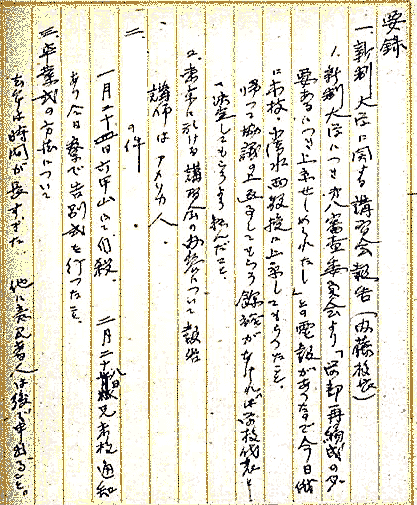 要録
一、新制大学に関する講習会報告(内藤校長)
1、新制大学につき大審査委員会より「学部再編成の必
要あるにつき上京せしめられたし」との電報があったので今日
に本校 西教授に上京してもらったこと。
帰って協議の上返事してもらう余裕がなければ学校代表と
決定してもらうよう頼んだこと。
2、東京に於ける講習会の内容について 報告
講師はアメリカ人
二、 の件
一月二十四日六甲山にて自殺。 二月二十八日 兄来校通知
あり今日 寮で告別式を行ったこと。
三、卒業式の方法について
去年は時間が長すぎた 他に意見者人は後で申出ること。